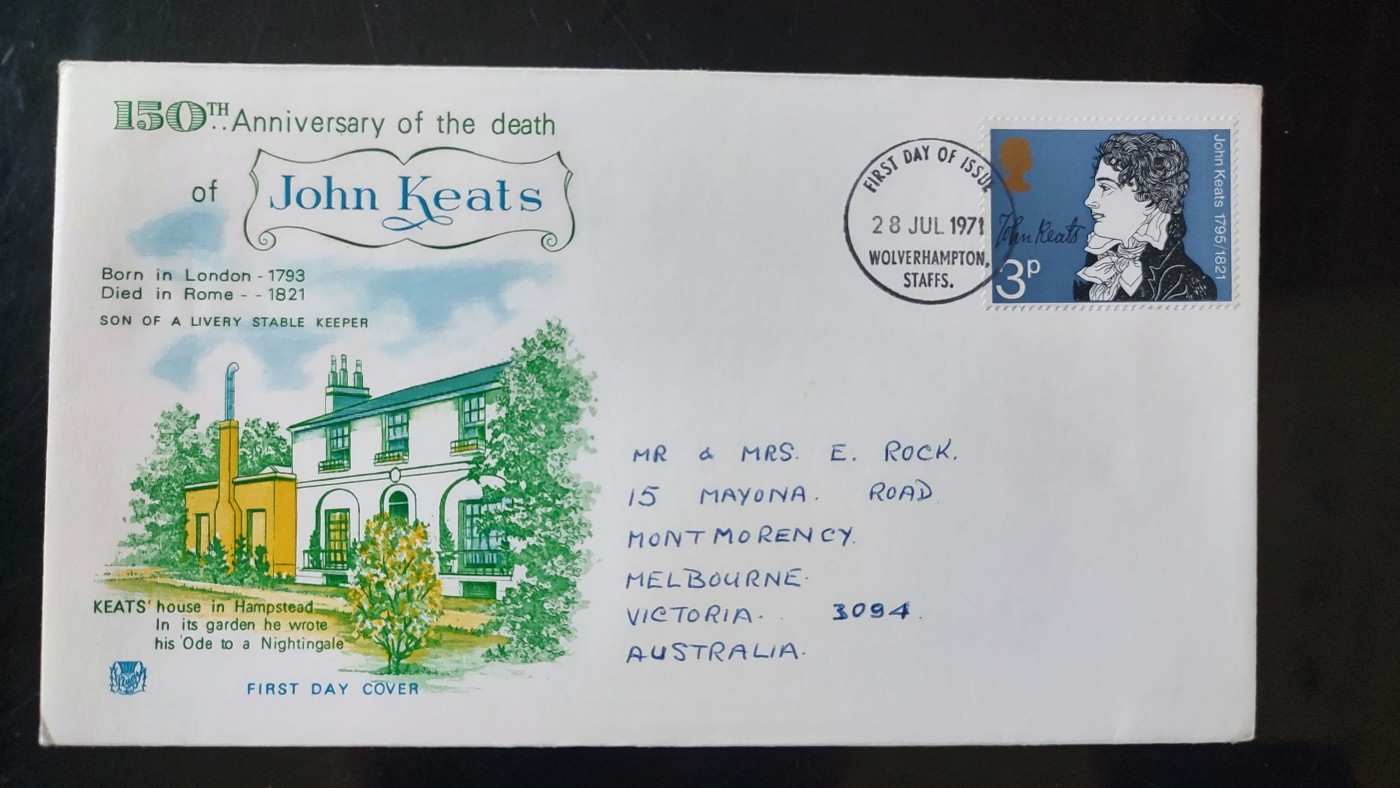 150TH Anniversary of the death
of John Keats
Born in London - 1793
Died in Rome - - 1821
SON OF A LIVERY STABLE KEEPER
KEATS' house in Hampstead
In its garden he wrote
his 'Ode to a Nightingale'
FIRST DAY COVER
FIRST DAY OF ISSUE
28 JUL 1971
WOLVERHAMPTON,
STAFFS.
John Keats
3p
John Keats 1795/1821
MR & MRS. E. ROCK.
15 MAYONA. ROAD
MONTMORENCY.
MELBOURNE.
VICTORIA. 3094.
AUSTRALIA.